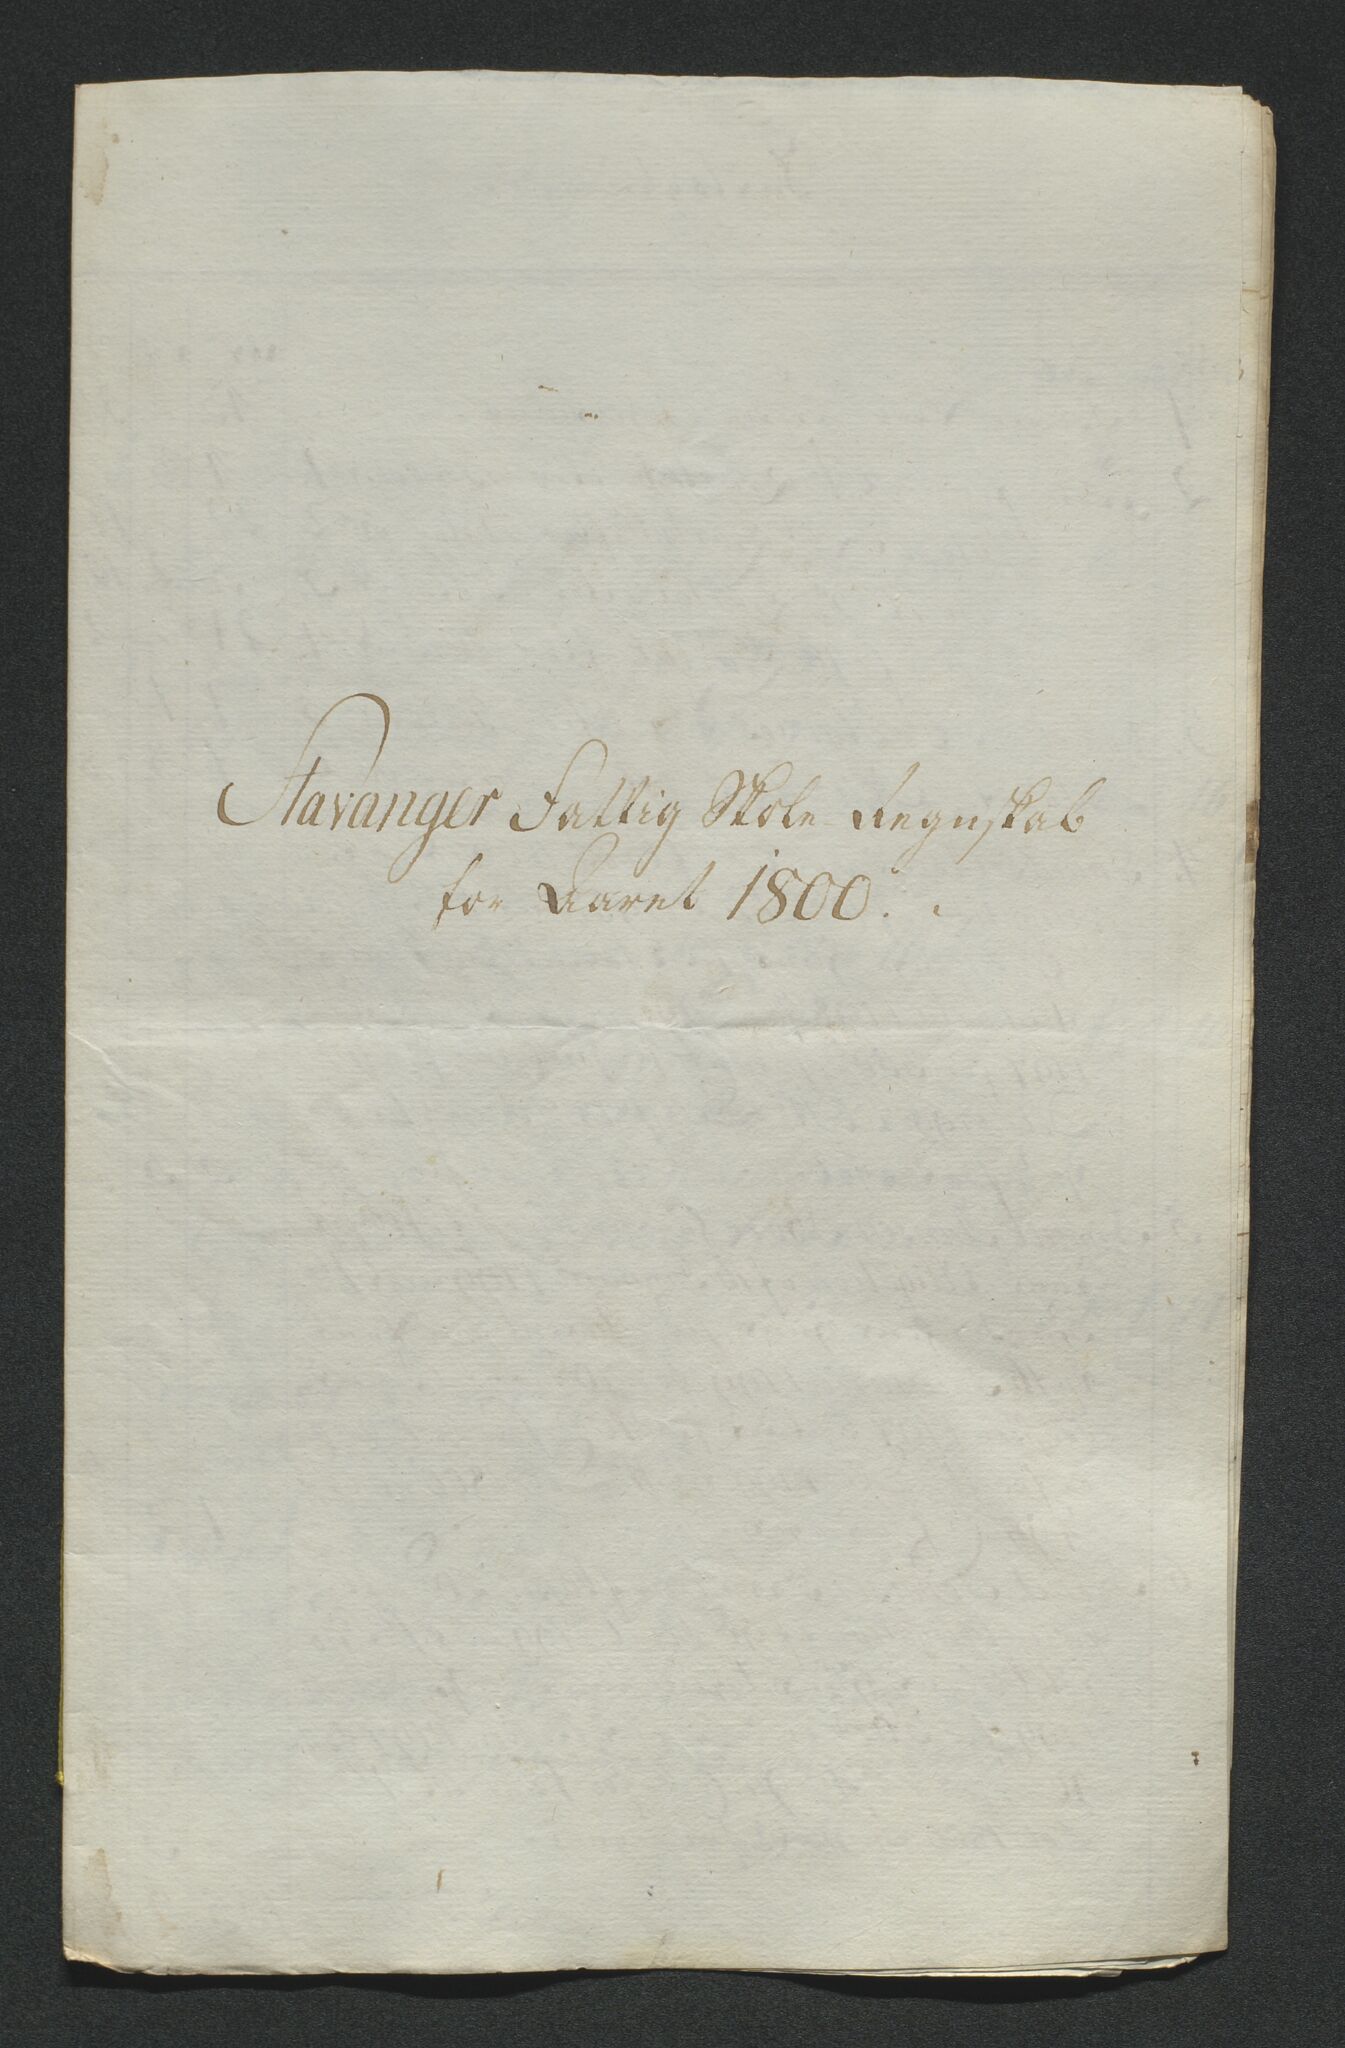 Stavanger Fattig Skole Regnskab
for Aaret 1800.